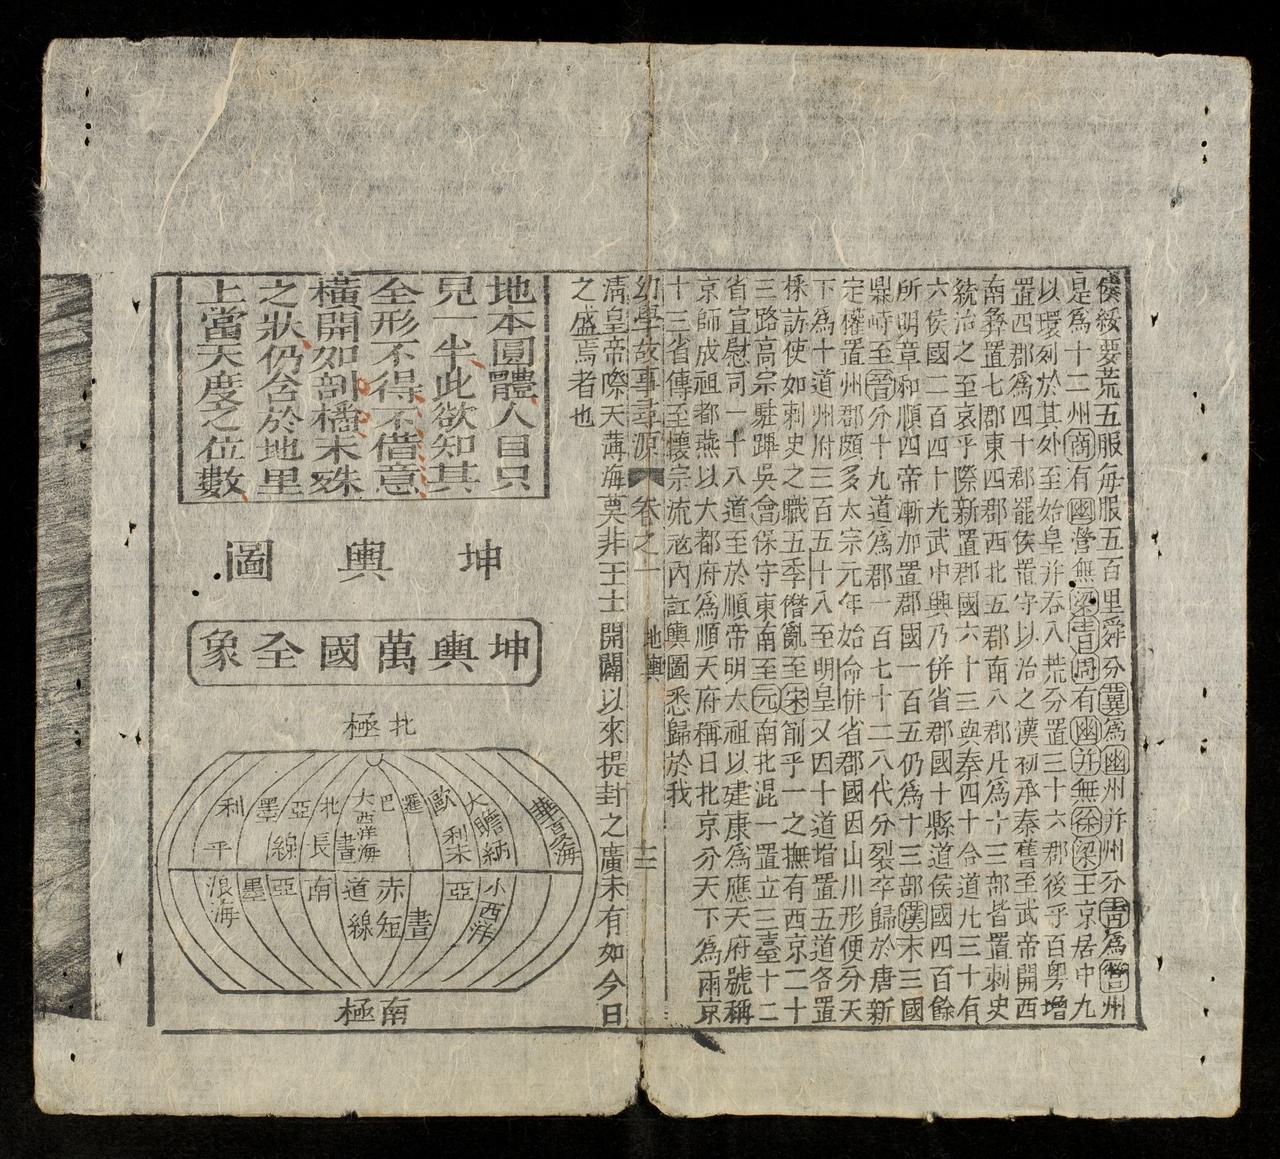 侯綏要荒五服每服五百里舜分冀爲幽州并州分青爲營州
是爲十二州商有幽營無梁青周有幽并無徐梁王京居中九
以環列於其外至始皇并吞八荒分置三十六郡後乎百粵增
置四郡爲四十郡罷侯置守以治之漢初承秦舊至武帝開西
南彝置七郡東四郡西北五郡南八郡凡爲十三部皆置刺史
統治之至哀平際新置郡國六十三與秦四十合道凡三十有
六侯國二百四十光武中興乃併省郡國十縣道侯國四百餘
所明章和順四帝漸加置郡國一百五仍爲十三部漢末三國
鼎峙至晉分十九道爲郡一百七十二八代分裂卒歸於唐新
定權置州郡頗多太宗元年始命併省郡國因山川形便分天
下爲十道州府三百五十八至明皇又因十道增置五道各置
採訪使如刺史之職五季僭亂至宋削平一之撫有西京二十
三路高宗駐蹕吳會保守東南至元南北混一置立三臺十二
省宣慰司一十八道至於順帝明太祖以建康爲應天府號稱
京師成祖都燕以大都府爲順天府稱曰北京分天下爲兩京
十三省傳至懷宗流寇內訌輿圖悉歸於我
幼學故事尋源 卷之一 地輿 十二
清皇帝際天薄海莫非王土開闢以來提封之廣未有如今日
之盛焉者也
地本圓體人目只
見一半此欲知其
全形不得不借意
橫開如剖橘未殊
之狀仍合於地里
上當天度之位數
坤輿圖
坤輿萬國全象
北極
華夏海
大瞻納
歐利未
邏
巴
大西洋海
晝
北
長
亞
線
墨
利
平
小西洋
亞
晝
赤短
道線
南
亞
墨
浪海
南極